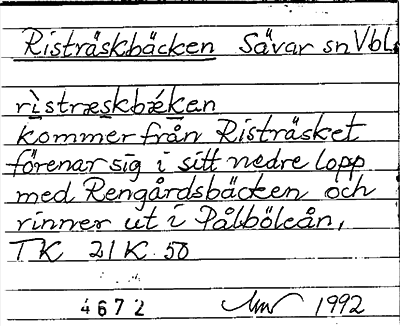 Risträskbäcken Sävar sn Vbl.
rìstræskbǽken
kommer från Risträsket
förenar sig i sitt nedre lopp
med Rengårdsbäcken och
rinner ut i Pålböleån,
TK 21K 50
4672 1992